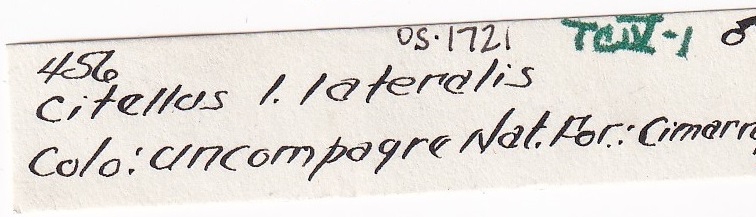 OS·1721 TCIV-1 ♂
456
Citellus l. lateralis
Colo: Uncompagre Nat. For.: Cimarr